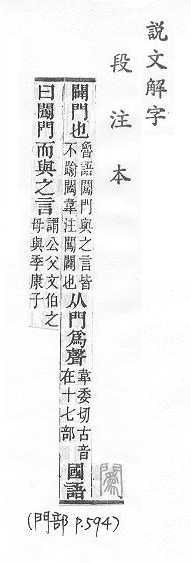 説文解字
段注本
闢門也
魯語䦱門與之言皆
不踰閾韋注䦱闢也
从門爲聲
韋委切古音
在十七部
國語
曰䦱門而與之言
謂公父文伯之
母與季康子
(門部 P.594)